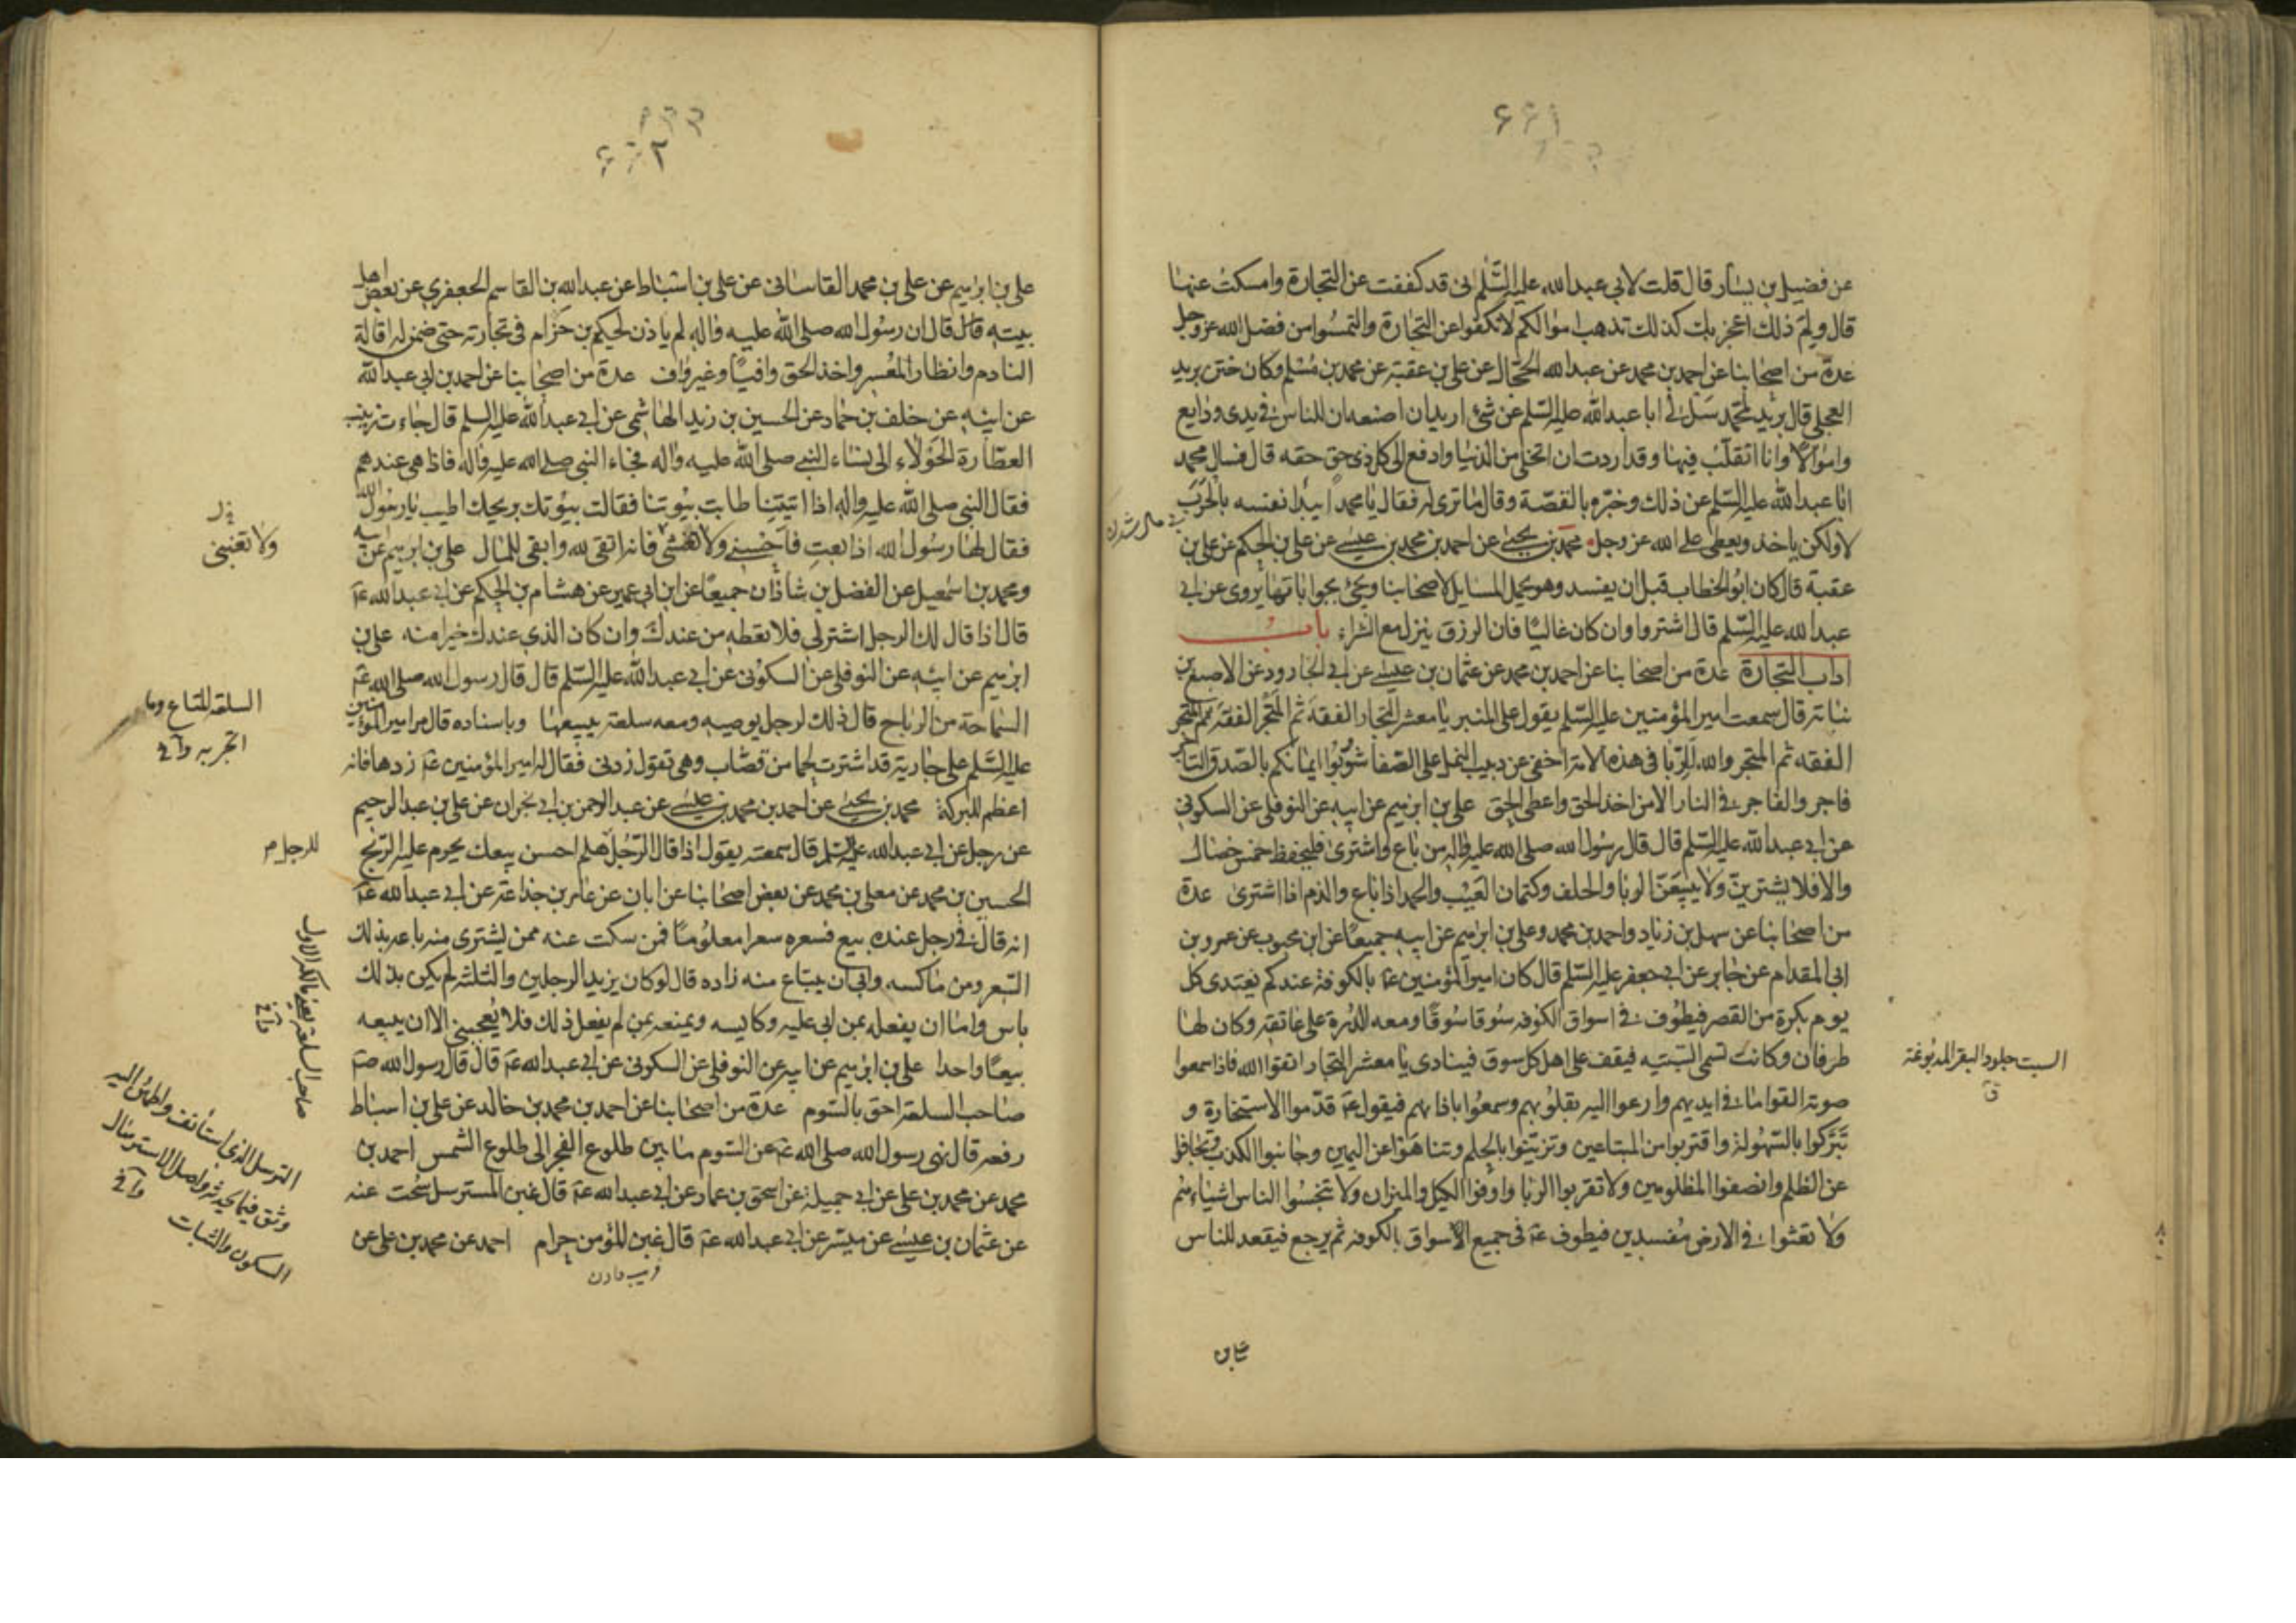 ٤٤١
عن فضيل بن يسار قال قلت لابي عبدالله عليه السّلم انى قد كففت عن التجارة وامسكت عنها
قال ولم ذلك اعجز بك كذلك تذهب اموالكم لا تكفوا عن التجارة والتمسوا من فضل الله عز وجل
عدة من اصحابنا عن احمد بن محمد عن عبدالله الحجال عن على بن عقبة عن محمد بن مسلم وكان ختن بريد
العجلى قال بريد لمحمد سل لى ابا عبدالله عليه السّلم عن شئ اريد ان اصنعه ان للناس فى يدى ودايع
واموالا وانا اتقلب فيها وقد اردت ان اتخلى من الدنيا وادفع الى كل ذى حق حقه قال فسال محمد
ابا عبدالله عليه السّلم عن ذلك وخبّره بالقصّة وقال ما ترى له فقال يا محمد ايبدا نفسه بالحَرَب
لا ولكن ياخذ ويعطى على الله عز وجل محمد بن يحيى عن احمد بن محمد بن عيسى عن على بن الحكم عن على بن
عقبة قال كان ابو الخطاب قبل ان يفسد وهو يحمل المسايل لاصحابنا ويجئ بجواباتها يروى عن ابى
عبدالله عليه السّلم قال اشتروا وان كان غاليًا فان الرزق ينزل مع الشراء باب
اداب التجارة عدة من اصحابنا عن احمد بن محمد عن عثمان بن عيسى عن ابى الجارود عن الاصبغ بن
نباتة قال سمعت امير المؤمنين عليه السّلم يقول على المنبر يا معشر التجار الفقه ثم المتجر الفقه ثم المتجر
الفقه ثم المتجر والله للرّبا فى هذه الامة اخفى من دبيب النمل على الصّفا شوّبوا ايمانكم بالصّدق التاجر
فاجر والفاجر فى النار الا من اخذ الحق واعطى الحق على بن ابرهيم عن ابيه عن النوفلى عن السكونى
عن ابى عبدالله عليه السّلم قال قال رسول الله صلى الله عليه واله من باع واشترى فليحفظ خمس خصال
والا فلا يشترينّ ولا يبيعَنّ الربا والحلف وكتمان العَيْب والحمد اذا باع والذم اذا اشترى عدة
من اصحابنا عن سهل بن زياد واحمد بن محمد وعلى بن ابرهيم عن ابيه جميعًا عن ابن محبوب عن عمرو بن
ابى المقدام عن جابر عن ابى جعفر عليه السّلم قال كان امير المؤمنين عة بالكوفة عندكم يغتدى كل
يوم بكرة من القصر فيطوف فى اسواق الكوفه سُوقا سُوقًا ومعه الدّرة على عاتقه وكان لها
طرفان وكانت تسمى السّبتيه فيقف على اهل كل سوق فينادى يا معشر التجار اتقوا الله فاذا سمعوا
صوته القوا ما فى ايديهم وارعوا اليه بقلوبهم وسمعوا باذانهم فيقول عة قدّموا الاستخارة و
تبَرّكوا بالسّهُولة واقتربوا من المبتاعين وتزيّنوا بالحلم وتناهَوْا عن اليمين وجانبوا الكذب وتجافوا
عن الظلم وانصفوا المظلومين ولا تقربوا الربا واوفوا الكيل والميزان ولا تبخسُوا الناس اشياءهم
ولا تعثوا فى الارض مُفسدين فيطوف عة فى جميع الاسواق بالكوفه ثم يرجع فيقعد للناس
السبت جلود البقر المدبوغة
ق
على بن
على بن ابرهيم عن على بن محمد القاسانى عن على بن اسْباط عن عبدالله بن القاسم الجعفرى عن بعض اهل
بيته قال قال ان رسول الله صلى الله عليه واله لم ياذن لحكيم بن حزام فى تجارته حتى ضمن له اقالة
النادم وانظار المُعْسر واخذ الحق وافيًا وغير واف عدة من اصحابنا عن احمد بن ابى عبدالله
عن ابيه عن خلف بن حماد عن الحسين بن زيد الهاشمى عن ابى عبدالله عليه السلم قال جاءت زينب
العطّارة الحَوْلاء الى نساء النبى صلى الله عليه واله فجاء النبى صلى الله عليه واله فاذا هى عندهم
فقال النبى صلى الله عليه واله اذا اتيتنا طابت بيُوتنا فقالت بيُوتك بريحك اطيب يا رسُول الله
فقال لها رسول الله اذا بعتِ فاحسنى ولا تغشّى فانه اتقى لله وابقى للمال على بن ابرهيم عن ابيه
ومحمد بن اسمعيل عن الفضل بن شاذان جميعًا عن ابن ابى عمير عن هشام بن الحكم عن ابى عبدالله عة
قال اذا قال لك الرجل اشتر لى فلا تعطه من عندك وان كان الذى عندك خيرا منه على بن
ابرهيم عن ابيه عن النوفلى عن السكونى عن ابى عبدالله عليه السّلم قال قال رسول الله صلى الله عة
السّماحة من الرباح قال ذلك لرجل يوصيه ومعه سلعة يبيعها وباسناده قال مر امير المؤمنين
عليه السّلم على جارية قد اشترت لحما من قصّاب وهى تقول زدنى فقال له امير المؤمنين عة زدها فانه
اعظم للبركة محمد بن يحيى عن احمد بن محمد بن عيسى عن عبد الرحمن بن ابى نجران عن على بن عبد الرحيم
عن رجل عن ابى عبدالله عليه السّلم قال سمعته يقول اذا قال الرّجُل هلم احسن بيعك يحرم عليه الرّبح
الحسين بن محمد عن معلى بن محمد عن بعض اصحابنا عن ابان عن عامر بن جذاعة عن ابى عبدالله عة
انه قال فى رجل عنده بيع فسعره سعرا معلُومًا فمن سكت عنه ممن يشترى منه باعه بذلك
السّعر ومن ماكسه وابى ان يبتاع منه زاده قال لو كان يزيد الرجلين والثلثة لم يكن بذلك
باس واما ان يفعله بمن ابى عليه وكايسه ويمنعه من لم يفعل ذلك فلا يُعجبنى الا ان يبيعه
بيعًا واحدا على بن ابرهيم عن ابيه عن النوفلى عن السكونى عن ابى عبدالله عة قال قال رسول الله صة
صاحب السلعة احق بالسّوم عدة من اصحابنا عن احمد بن محمد بن خالد عن على بن اسباط
رفعه قال نهى رسول الله صلى الله عة عن السّوم ما بين طلوع الفجر الى طلوع الشمس احمد بن
محمد عن محمد بن على عن ابى جميلة عن اسحق بن عمار عن ابى عبدالله عة قال غبن المسترسل سُحت عنه
عن عثمان بن عيسى عن ميسّر عن ابى عبدالله عة قال غبن المؤمن حرام احمد عن محمد بن على عن
ولا تغبنى
السلعة المتاع وما
اتجر به وآفى
للرجل
صاحب السلعة يعنى مالكه الاول
وآفى
الترسل الذى استانف واطمئن اليه
وثق فيما يحدثه واصل الاسترسال
السكون والثبات وآفى